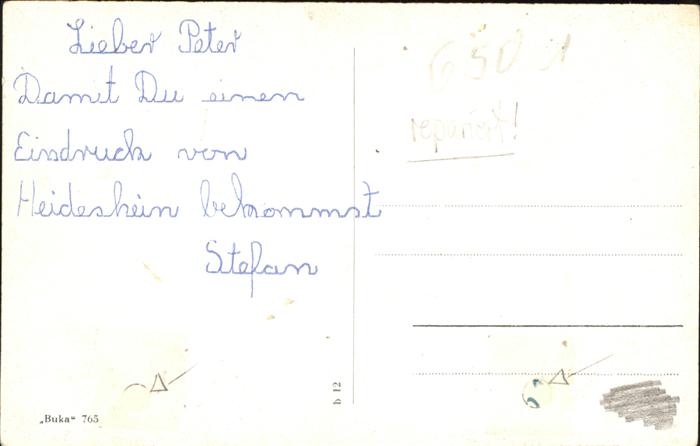 Lieber Peter
Damit Du einen
Eindruck von
Heideshein bekommst
Stefan
650
repariert!
b 12
„Buka“ 765